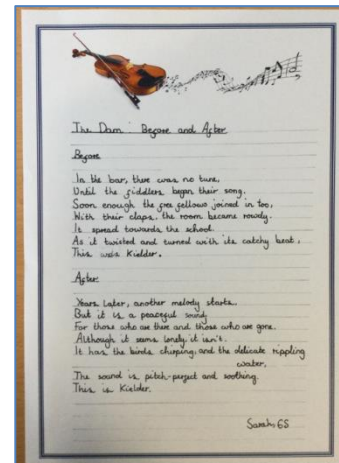 The Dam: Before and After
Before
In the bar, there was no tune,
Until the fiddlers began their song,
Soon enough the free fellows joined in too,
With their claps, the room became rowdy.
It spread towards the school.
As it twisted and turned with its catchy beat,
This was Kielder.
After
Years later, another melody starts.
But it is a peaceful sound
For those who are there and those who are gone.
Although it seems lonely, it isn't.
It has the birds chirping, and the delicate rippling
water,
The sound is pitch-perfect and soothing.
This is Kielder.
Sarah, 6S